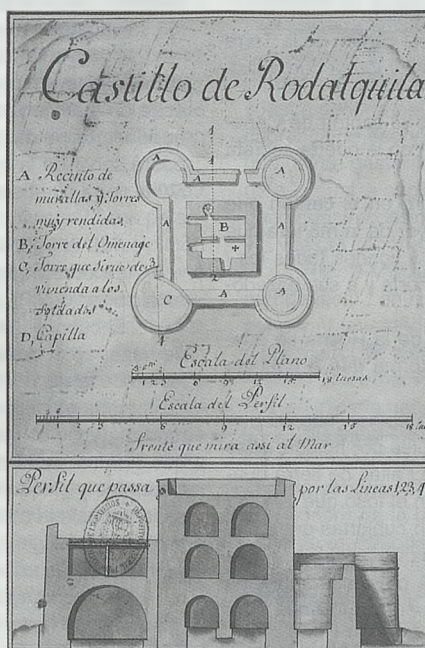 Castillo de Rodalquilar
A Recinto de
murallas y Torres
muy rendidas
B, Torre del Omenage
C, Torre que sirue de
vivienda a los
Soldados
D, Capilla
1
A
A
A
B
A
A
2
3
C
A
A
4
Escala del Plano
1 2 3 6 9 12 15 18 tuesas
Escala del Perfil
1 2 3 6 9 12 15 18
frente que mira assi al Mar
Perfil que passa por las Lineas 1,2,3,4